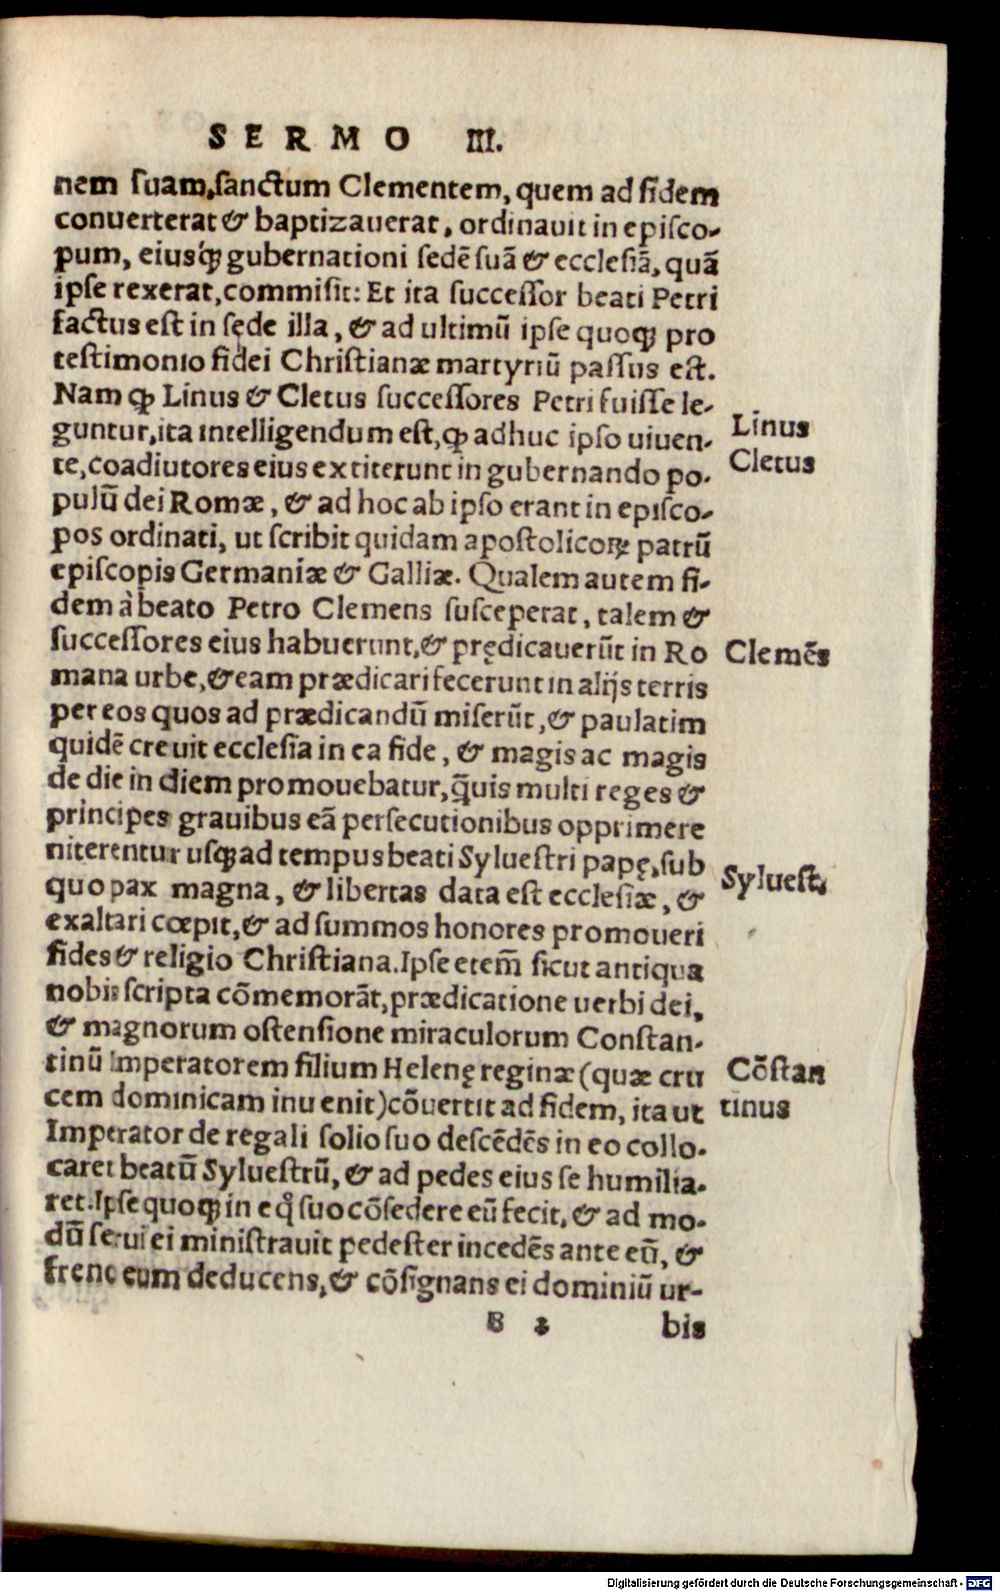 SERMO III.
nem ſuam, ſanctum Clementem, quem ad fidem
conuerterat & baptizauerat, ordinauit in epiſco-
pum, eiusq́; gubernationi ſedē ſuā & eccleſiā, quā
ipſe rexerat, commiſit: Et ita ſucceſſor beati Petri
factus eſt in ſęde illa, & ad ultimū ipſe quoq; pro
teſtimonio fidei Chriſtianæ martyriū paſſus eſt.
Nam ꝙ Linus & Cletus ſucceſſores Petri fuiſſe le-
guntur, ita intelligendum eſt, ꝙ adhuc ipſo uiuen-
te, coadiutores eius extiterunt in gubernando po-
pulū dei Romæ, & ad hoc ab ipſo erant in epiſco-
pos ordinati, ut ſcribit quidam apoſtolicoꝝ patrū
epiſcopis Germaniæ & Galliæ. Qualem autem fi-
dem à beato Petro Clemens ſuſceperat, talem &
ſucceſſores eius habuerunt, & prędicauerūt in Ro
mana urbe, & eam prædicari fecerunt in alijs terris
per eos quos ad prædicandū miſerūt, & paulatim
quidē creuit eccleſia in ea fide, & magis ac magis
de die in diem promouebatur, q̃uis multi reges &
principes grauibus eā perſecutionibus opprimere
niterentur uſq; ad tempus beati Sylueſtri papę, ſub
quo pax magna, & libertas data eſt eccleſiæ, &
exaltari cœpit, & ad ſummos honores promoueri
fides & religio Chriſtiana. Ipſe etem̃ ſicut antiqua
nobis ſcripta cōmemorāt, prædicatione uerbi dei,
& magnorum oſtenſione miraculorum Conſtan-
tinū Imperatorem filium Helenę reginæ (quæ cru
cem dominicam inuenit) cōuertit ad fidem, ita ut
Imperator de regali ſolio ſuo deſcēdēs in eo collo-
caret beatū Sylueſtrū, & ad pedes eius ſe humilia-
ret. Ipſe quoq; in eq̊ ſuo cōſedere eū fecit, & ad mo-
dū ſerui ei miniſtrauit pedeſter incedēs ante eū, &
freno eum deducens, & cōſignans ei dominiū ur-
B 2 bis
Linus
Cletus
Clemēs
Sylueſt.
Cōſtan
tinus
Digitalisierung gefördert durch die Deutsche Forschungsgemeinschaft - DFG